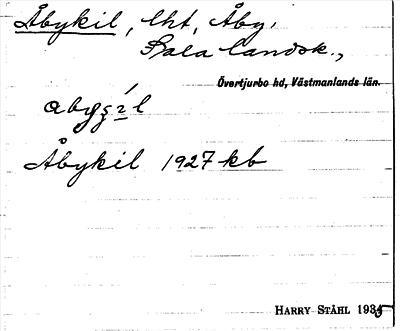 Åbykil, lht, Åby,
Sala landsk.,
Övertjurbo hd, Västmanlands län.
Åbykil 1927 kb
HARRY STÅHL 1935